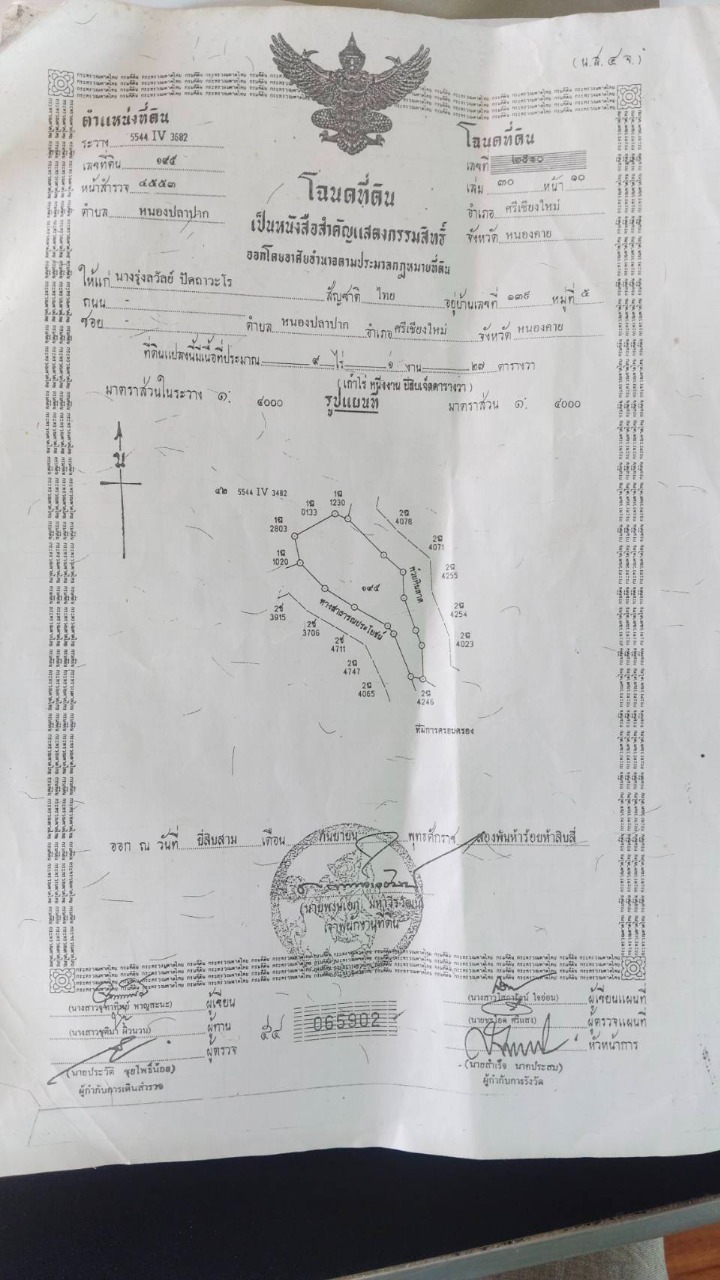 (น.ส.๔ จ.)
ตำแหน่งที่ดิน
ระวาง 5544 IV 3682
เลขที่ดิน ๑๙๕
หน้าสำรวจ ๔๕๕๓
ตำบล หนองปลาปาก
โฉนดที่ดิน
เลขที่ ๒๕๑๐
เล่ม ๓๐ หน้า ๑๐
อำเภอ ศรีเชียงใหม่
จังหวัด หนองคาย
โฉนดที่ดิน
เป็นหนังสือสำคัญแสดงกรรมสิทธิ์
ออกโดยอาศัยอำนาจตามประมวลกฎหมายที่ดิน
ให้แก่ นางรุ่งลวัลย์ ปัดถาวะโร สัญชาติ ไทย อยู่บ้านเลขที่ ๑๓๙ หมู่ที่ ๕
ถนน -
ซอย - ตำบล หนองปลาปาก อำเภอ ศรีเชียงใหม่ จังหวัด หนองคาย
ที่ดินแปลงนี้มีเนื้อที่ประมาณ ๙ ไร่ ๑ งาน ๒๗ ตารางวา
(เก้าไร่ หนึ่งงาน ยี่สิบเจ็ดตารางวา)
มาตราส่วนในระวาง ๑: ๔๐๐๐ รูปแผนที่ มาตราส่วน ๑: ๔๐๐๐
น
๔๒ 5544 IV 3482
1ฉ 0133
1ฉ 1230
1ฉ 2803
1ฉ 1020
2ฉ 4078
2ฉ 4071
2ฉ 4255
2ฉ 4254
2ฉ 4023
๑๙๕
ห้วยหินลาด
ทางสาธารณประโยชน์
2ช 3915
2ช 3706
2ช 4711
2ฉ 4747
2ฉ 4065
2ฉ 4246
ที่มีการครอบครอง
ออก ณ วันที่ ยี่สิบสาม เดือน กันยายน พุทธศักราช สองพันห้าร้อยห้าสิบสี่
เจ้าพนักงานที่ดิน
ผู้เขียน
ผู้ทาน
ผู้ตรวจ
(นายประวัติ ชุยโพธิ์น้อย)
ผู้กำกับการเดินสำรวจ
๕๔ 065902
ผู้เขียนแผนที่
ผู้ตรวจแผนที่
หัวหน้าการ
(นายสำเริง นาคประสม)
ผู้กำกับการรังวัด